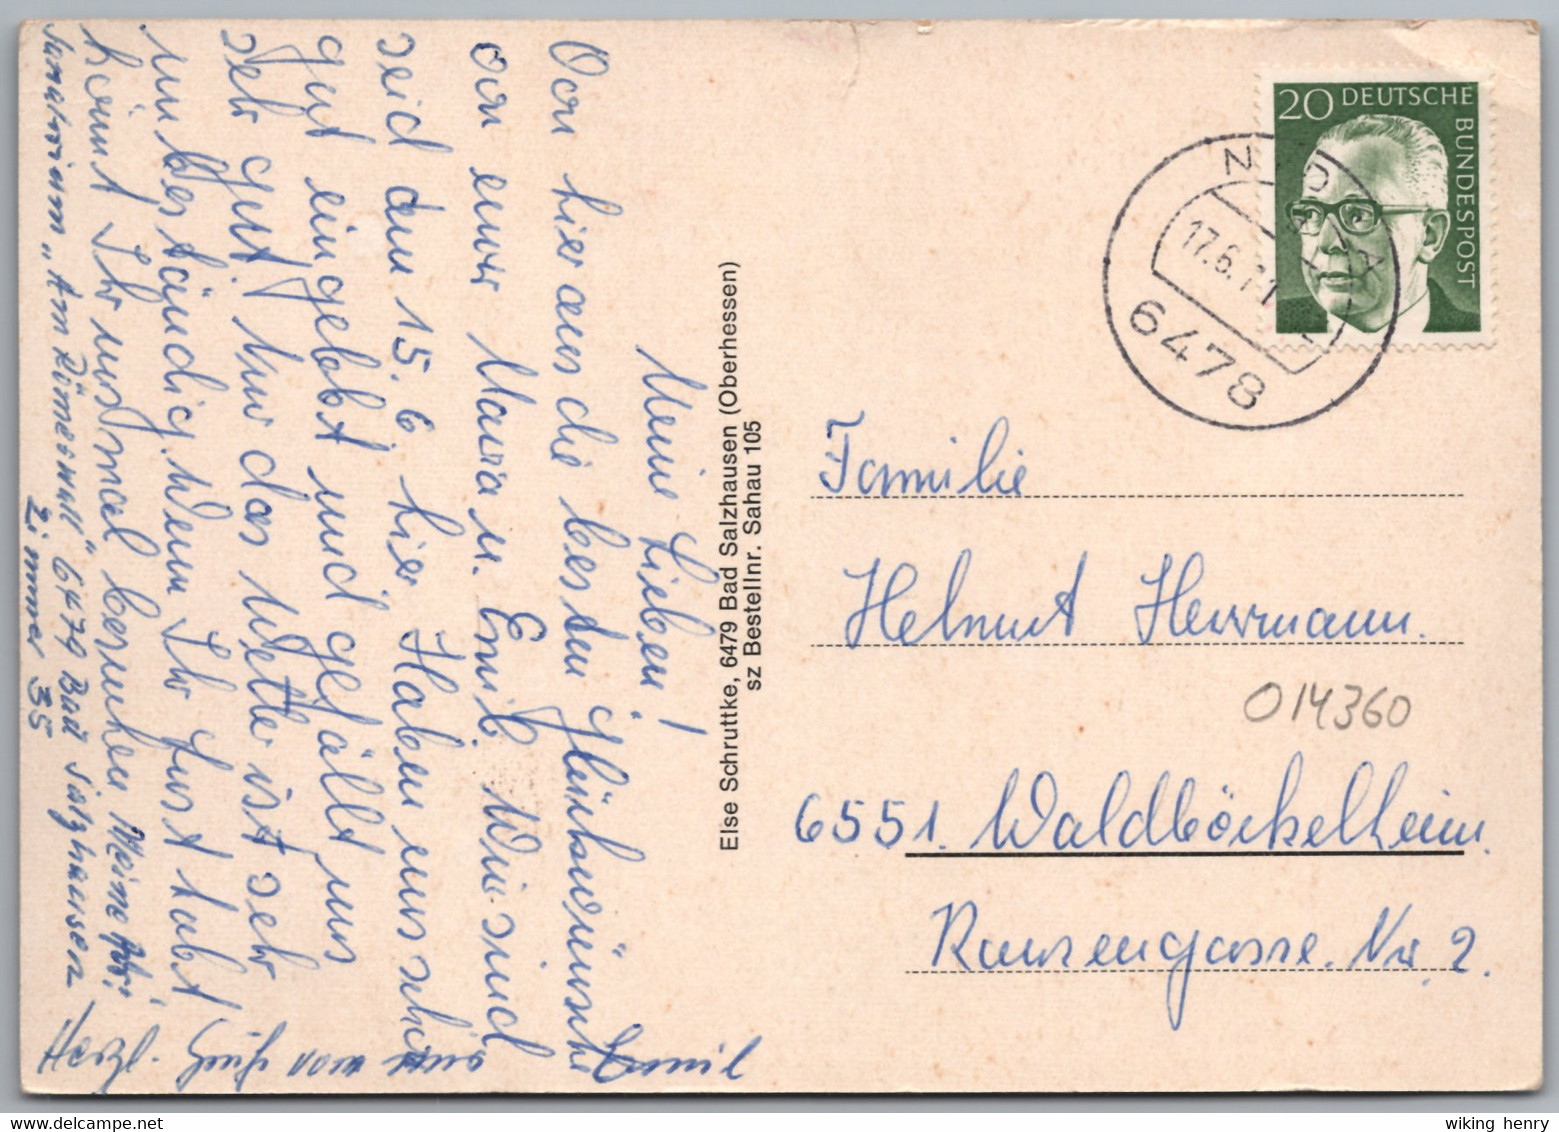 Meine Lieben!
Von hier aus die besten Glückwünsche
von eurer Maria u. Emil. Wir sind
seid den 15.6. hier. Haben uns schon
gut eingelebt und gefällt uns
sehr gut. Nur das Wetter ist sehr
unbeständig. Wenn Ihr Lust habt
könnt Ihr uns mal besuchen. Meine
Sanatorium "Am Römerwall" 6479 Bad Salzhausen
Zimmer 35
Herzl. von Emil
Else Schruttke, 6479 Bad Salzhausen (Oberhessen)
sz Bestellnr. Sahau 105
20 DEUTSCHE
BUNDESPOST
NIDDA
17.6.71
6478
Familie
Helmut Herrmann.
014360
6551. Waldböckelheim.
Nr. 2.
wiking henry